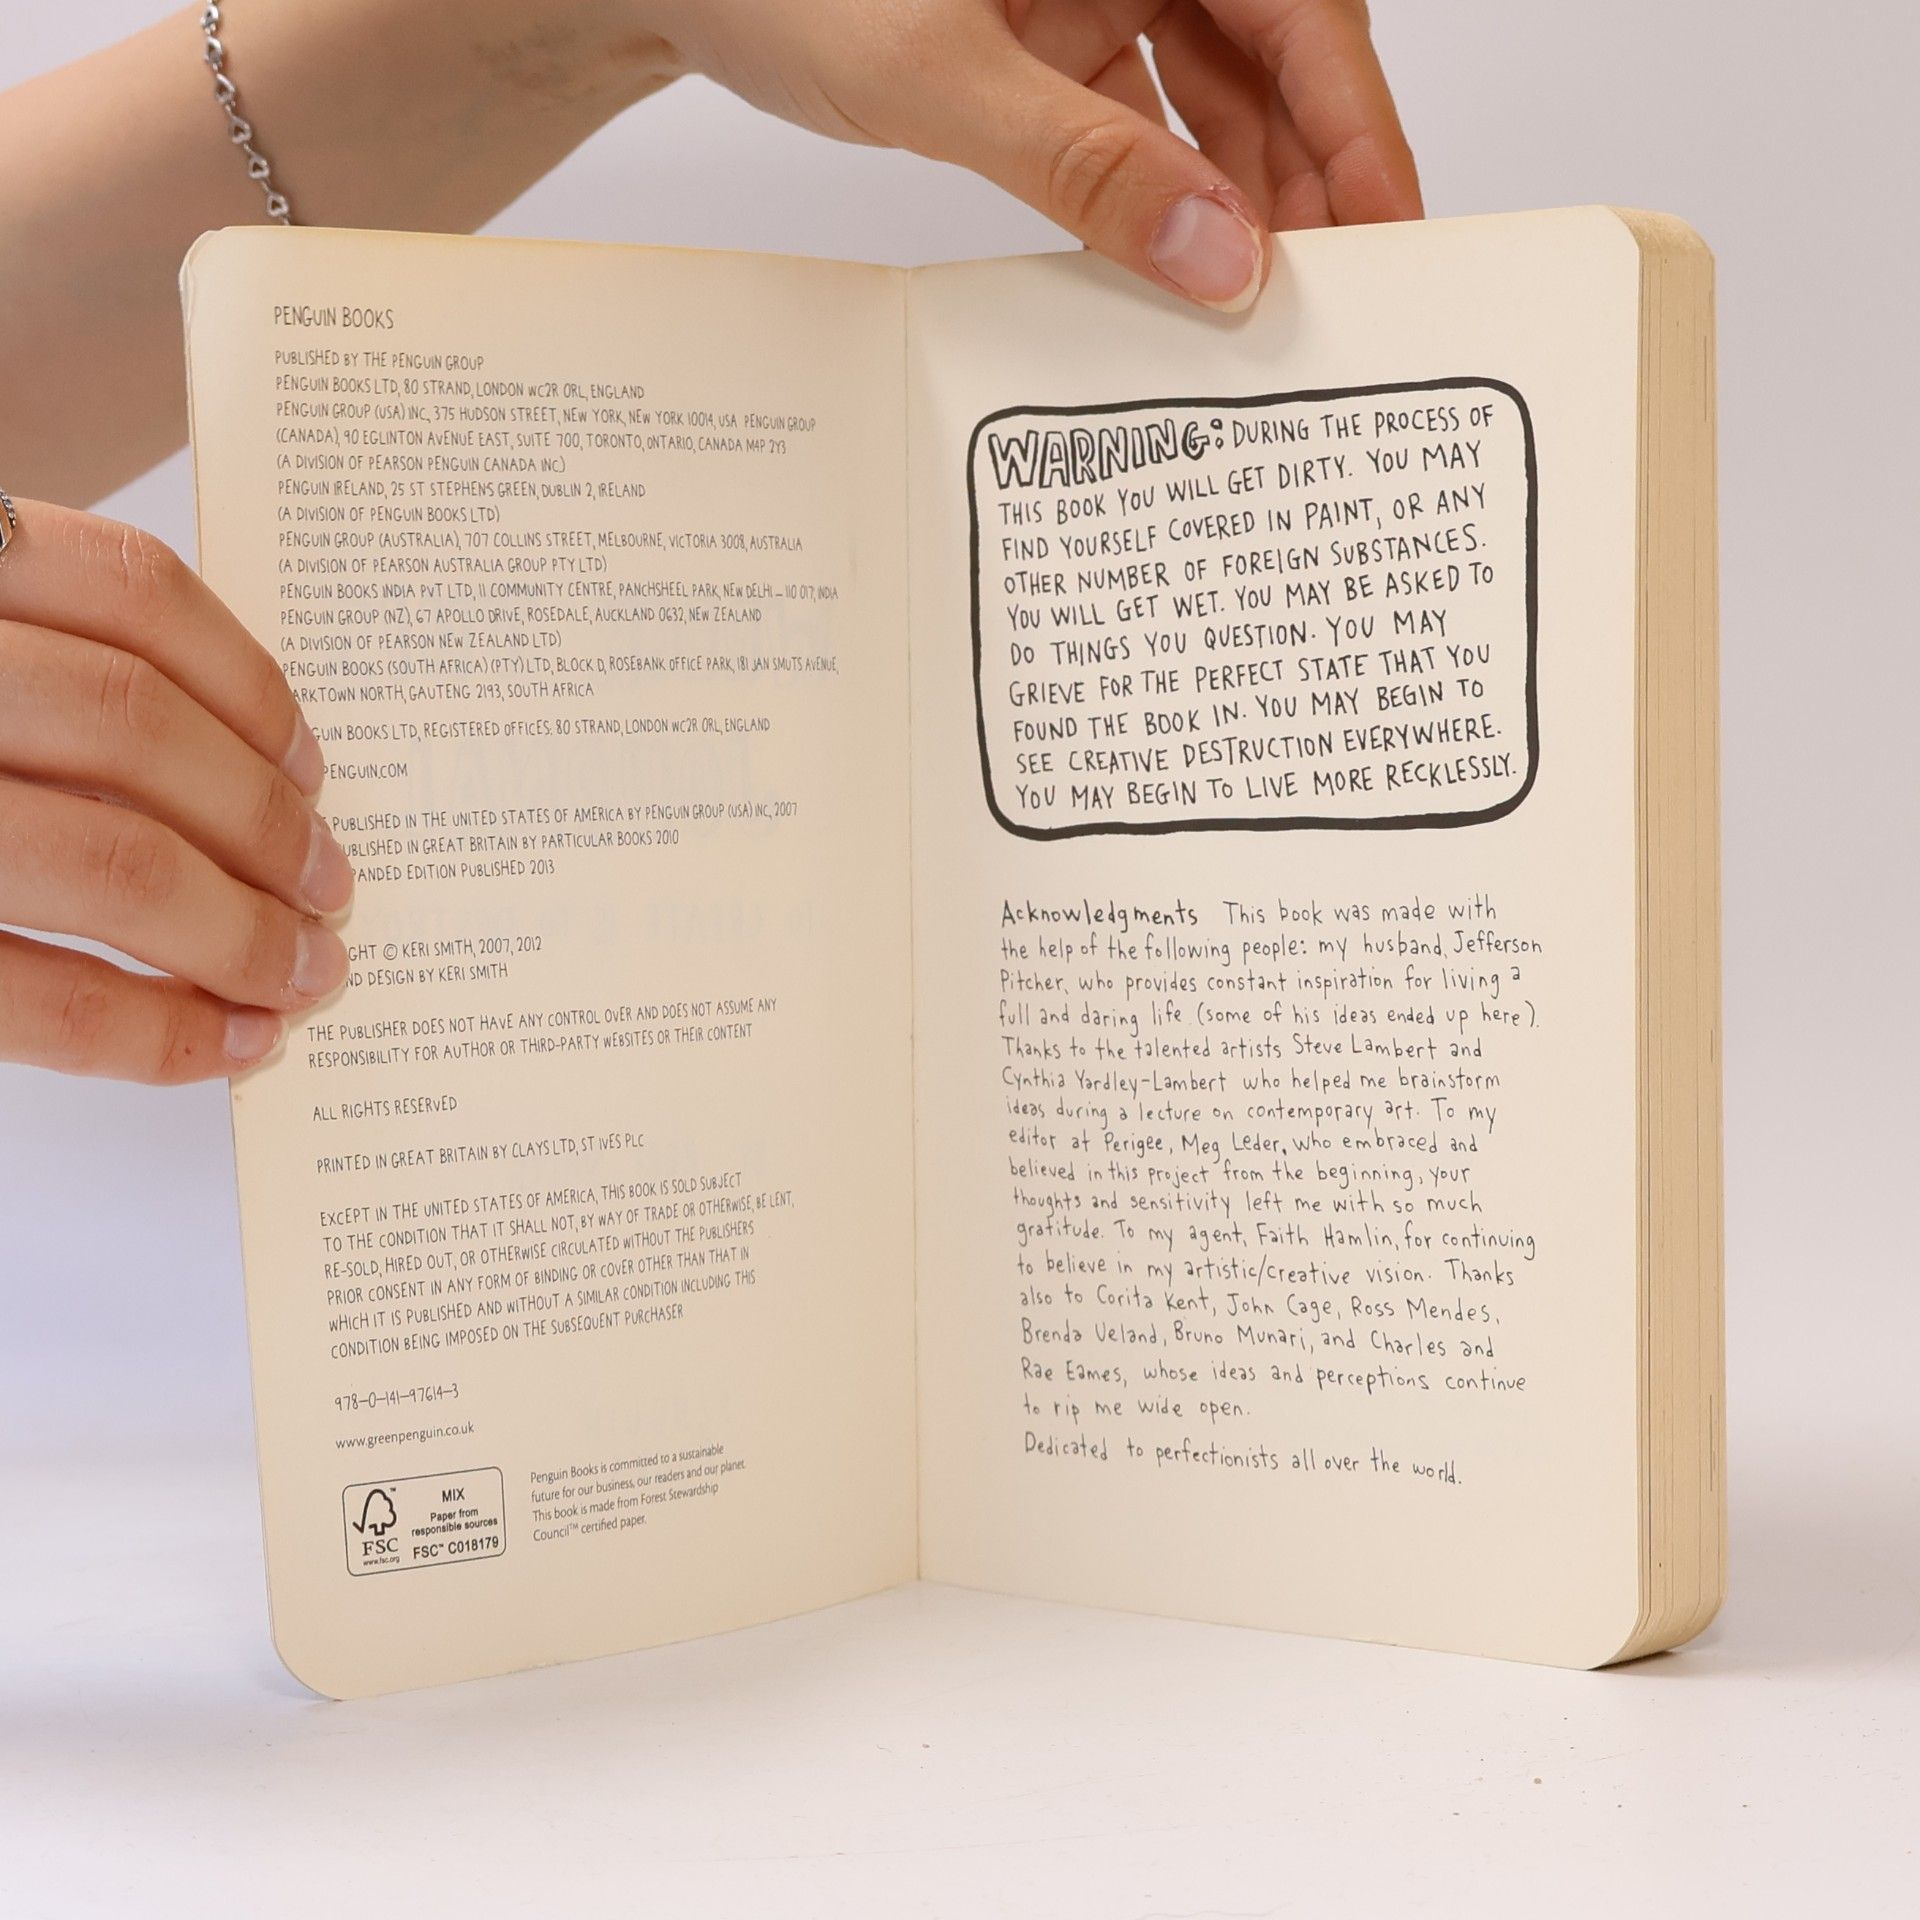 PENGUIN BOOKS
PUBLISHED BY THE PENGUIN GROUP
PENGUIN BOOKS LTD, 80 STRAND, LONDON WC2R ORL, ENGLAND
PENGUIN GROUP (USA) INC, 375 HUDSON STREET, NEW YORK, NEW YORK 10014, USA PENGUIN GROUP
(CANADA), 90 EGLINTON AVENUE EAST, SUITE 700, TORONTO, ONTARIO, CANADA M4P 2Y3
(A DIVISION OF PEARSON PENGUIN CANADA INC)
PENGUIN IRELAND, 25 ST STEPHENS GREEN, DUBLIN 2, IRELAND
(A DIVISION OF PENGUIN BOOKS LTD)
PENGUIN GROUP (AUSTRALIA), 707 COLLINS STREET, MELBOURNE, VICTORIA 3008, AUSTRALIA
(A DIVISION OF PEARSON AUSTRALIA GROUP PTY LTD)
PENGUIN BOOKS INDIA PVT LTD, 11 COMMUNITY CENTRE, PANCHSHEEL PARK, NEW DELHI – 110 017, INDIA
PENGUIN GROUP (NZ), 67 APOLLO DRIVE, ROSEDALE, AUCKLAND 0632, NEW ZEALAND
(A DIVISION OF PEARSON NEW ZEALAND LTD)
PENGUIN BOOKS (SOUTH AFRICA) (PTY) LTD, BLOCK D, ROSEBANK OFFICE PARK, 181 JAN SMUTS AVENUE,
ARKTOWN NORTH, GAUTENG 2193, SOUTH AFRICA
GUIN BOOKS LTD, REGISTERED OFFICES: 80 STRAND, LONDON WC2R ORL, ENGLAND
PENGUIN.COM
PUBLISHED IN THE UNITED STATES OF AMERICA BY PENGUIN GROUP (USA) INC, 2007
UBLISHED IN GREAT BRITAIN BY PARTICULAR BOOKS 2010
PANDED EDITION PUBLISHED 2013
GHT © KERI SMITH, 2007, 2012
ND DESIGN BY KERI SMITH
THE PUBLISHER DOES NOT HAVE ANY CONTROL OVER AND DOES NOT ASSUME ANY
RESPONSIBILITY FOR AUTHOR OR THIRD-PARTY WEBSITES OR THEIR CONTENT
ALL RIGHTS RESERVED
PRINTED IN GREAT BRITAIN BY CLAYS LTD, ST IVES PLC
EXCEPT IN THE UNITED STATES OF AMERICA, THIS BOOK IS SOLD SUBJECT
TO THE CONDITION THAT IT SHALL NOT, BY WAY OF TRADE OR OTHERWISE, BE LENT,
RE-SOLD, HIRED OUT, OR OTHERWISE CIRCULATED WITHOUT THE PUBLISHERS
PRIOR CONSENT IN ANY FORM OF BINDING OR COVER OTHER THAN THAT IN
WHICH IT IS PUBLISHED AND WITHOUT A SIMILAR CONDITION INCLUDING THIS
CONDITION BEING IMPOSED ON THE SUBSEQUENT PURCHASER
978-0-141-97614-3
www.greenpenguin.co.uk
FSC
www.fsc.org
MIX
Paper from
responsible sources
FSC™ C018179
Penguin Books is committed to a sustainable
future for our business, our readers and our planet.
This book is made from Forest Stewardship
Council™ certified paper.
WARNING: DURING THE PROCESS OF
THIS BOOK YOU WILL GET DIRTY. YOU MAY
FIND YOURSELF COVERED IN PAINT, OR ANY
OTHER NUMBER OF FOREIGN SUBSTANCES.
YOU WILL GET WET. YOU MAY BE ASKED TO
DO THINGS YOU QUESTION. YOU MAY
GRIEVE FOR THE PERFECT STATE THAT YOU
FOUND THE BOOK IN. YOU MAY BEGIN TO
SEE CREATIVE DESTRUCTION EVERYWHERE.
YOU MAY BEGIN TO LIVE MORE RECKLESSLY.
Acknowledgments This book was made with
the help of the following people: my husband, Jefferson
Pitcher, who provides constant inspiration for living a
full and daring life (some of his ideas ended up here).
Thanks to the talented artists Steve Lambert and
Cynthia Yardley-Lambert who helped me brainstorm
ideas during a lecture on contemporary art. To my
editor at Perigee, Meg Leder, who embraced and
believed in this project from the beginning, your
thoughts and sensitivity left me with so much
gratitude. To my agent, Faith Hamlin, for continuing
to believe in my artistic/creative vision. Thanks
also to Corita Kent, John Cage, Ross Mendes,
Brenda Ueland, Bruno Munari, and Charles and
Rae Eames, whose ideas and perceptions continue
to rip me wide open.
Dedicated to perfectionists all over the world.